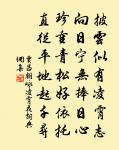 披雲似有凌霄志
向日寧無捧日心
珍重青松好依托
直從平地起千尋
賈昌朝詠凌霄花詞典
網集